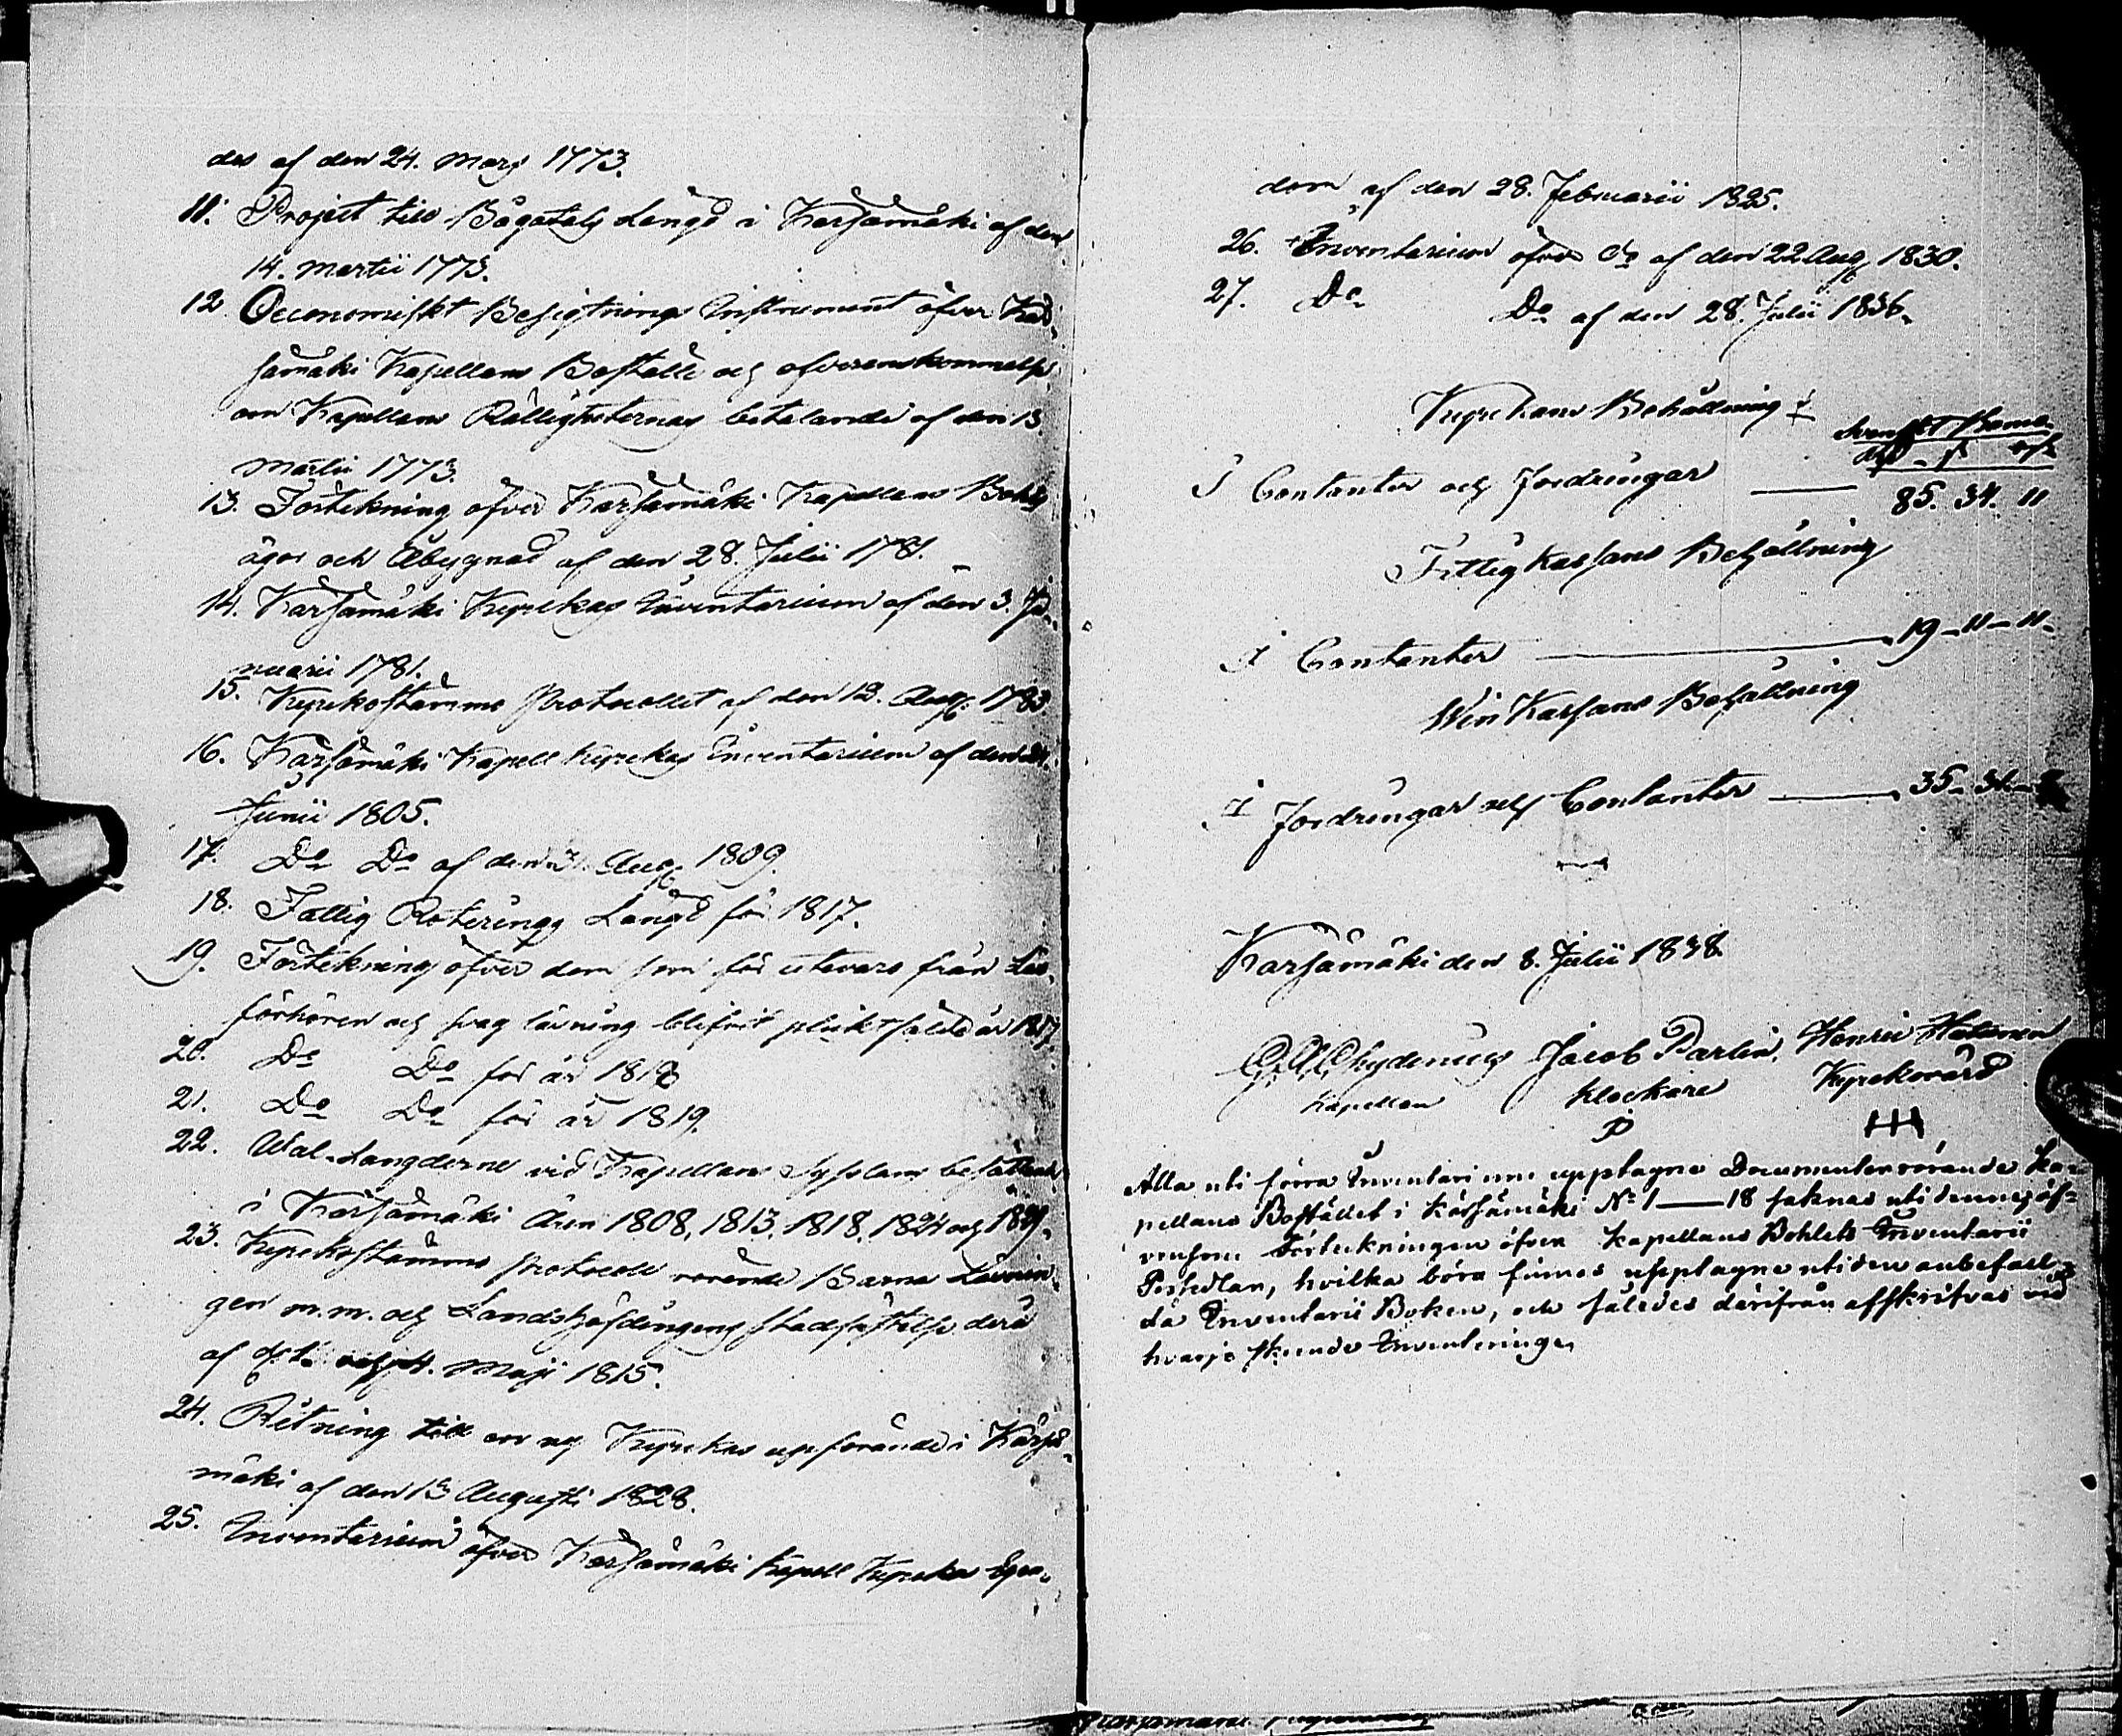 des af den 24. Marz 1773.
11. Project till Bågatals Längd i Karsamäki af den
14. Martii 1773.
12. Oeconomiskt Besigtnings Instrument öfver Kar-
samäki Kapellans Boställe och öfverenskommelse
om Kapellans Rättigheternas betalande af den 13.
Martii 1773.
13. Förtekning öfver Karsamäki Kapellans Bohls
ägor och Åbygnad af den 28. Julii 1781.
14. Karsamäki Kyrkas Inventarium af den 3. Ja-
nuarii 1781.
15. Kyrkostämmo Protocollet af den 12. Aug. 1783.
16. Karsamäki Kapell Kyrkas Inventarium af den
Junii 1805.
17. Do Do af den Aug. 1809.
18. Fattig Roterings Längd för 1817.
19. Förtekning öfver dem som för utevaro från Läs-
förhören och svag läsning blifvit pliktfälde år 1817.
20. Do Do för år 1818
21. Do Do för år 1819.
22. Wal-Längderne vid Kapellans Sysslans besättande
i Karsamäki Åren 1808, 1813, 1818, 1824 och 1829.
23. Kyrkostämmo Protocoll rörande Barna Läsnin-
gen m.m. och Landshöfdingens stadfästelse derå
af Maji 1815.
24. Ritning till en ny Kyrkas uppförande i Karsa-
mäki af den 13 Augusti 1828.
25. Inventarium öfver Karsamäki Kapell Kyrka Egen-
dom af den 28. Februarii 1825.
26. Inventarium öfver Do af den 22 Aug. 1830.
27. Do Do af den 28. Julii 1836.
Kyrkans Behållning
Svenskt Banco
Rdr - s rst
I Contanter och Fordringar — 85. 34. 11
Fattig Kassans Behållning
I Contanter — 19-11-11-
Win Kassans Behållning
I Fordringar och Contanter — 35-
Karsamäki den 8. Julii 1838.
Chydenius Jacob Parlin, Henric
Kapellan Klockare Kyrkovärd
Alla uti förra Inventarium upptagne Documenter rörande Ka-
pellans Bostället i Karsamäki No 1 — 18 saknas uti denne, äf-
vensom Förteckningen öfver Kapellans Bohlets Inventarii
Persedlar, hvilka böra finnas upptagne uti den anbefall-
da Inventarii Boken, och således därifrån affskrifvas vid
hvarje skeende Inventeringe